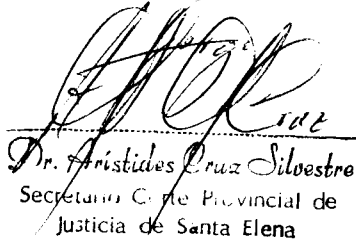 Dr. Arístides Cruz Silvestre
Secretario Corte Provincial de
Justicia de Santa Elena